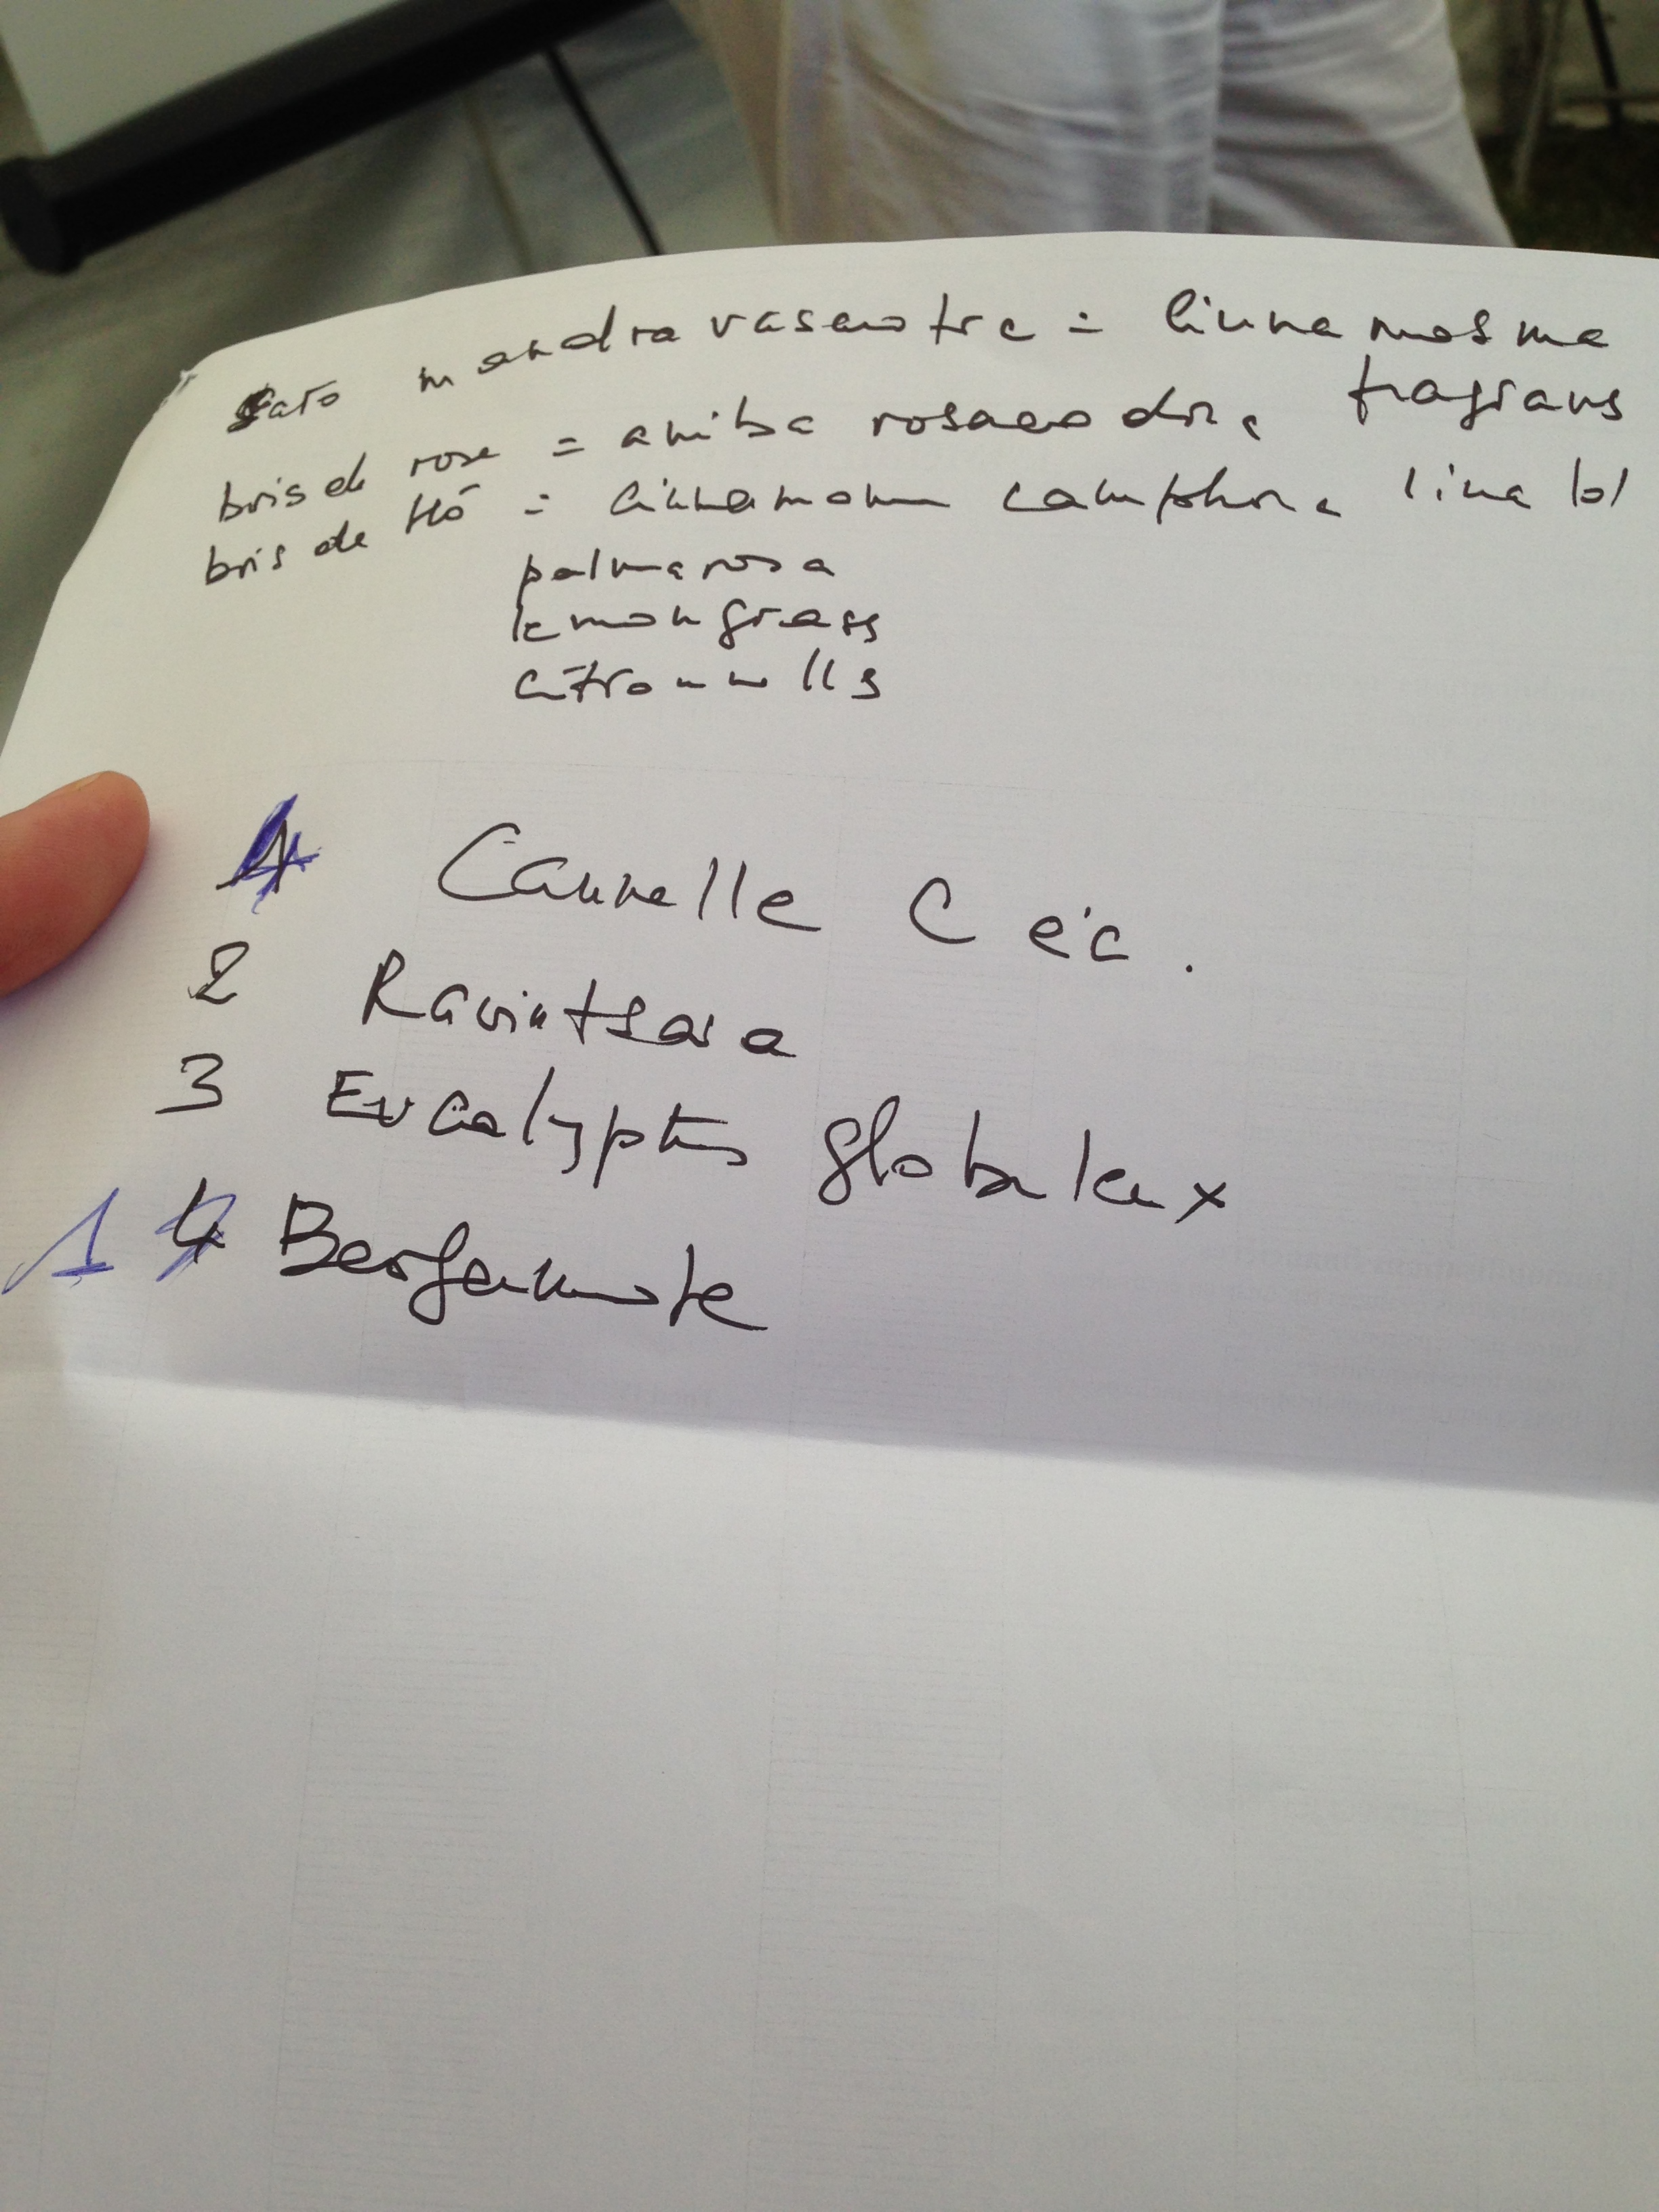 mandravasarotra = cinnamosma
fragrans
bois de rose = aniba rosaeodora
bois de Hô = cinnamomum camphora linalol
palmarosa
lemongrass
citronnelle
4 Cannelle C éc.
2 Ravintsara
3 Eucalyptus globuleux
1 4 Bergamote